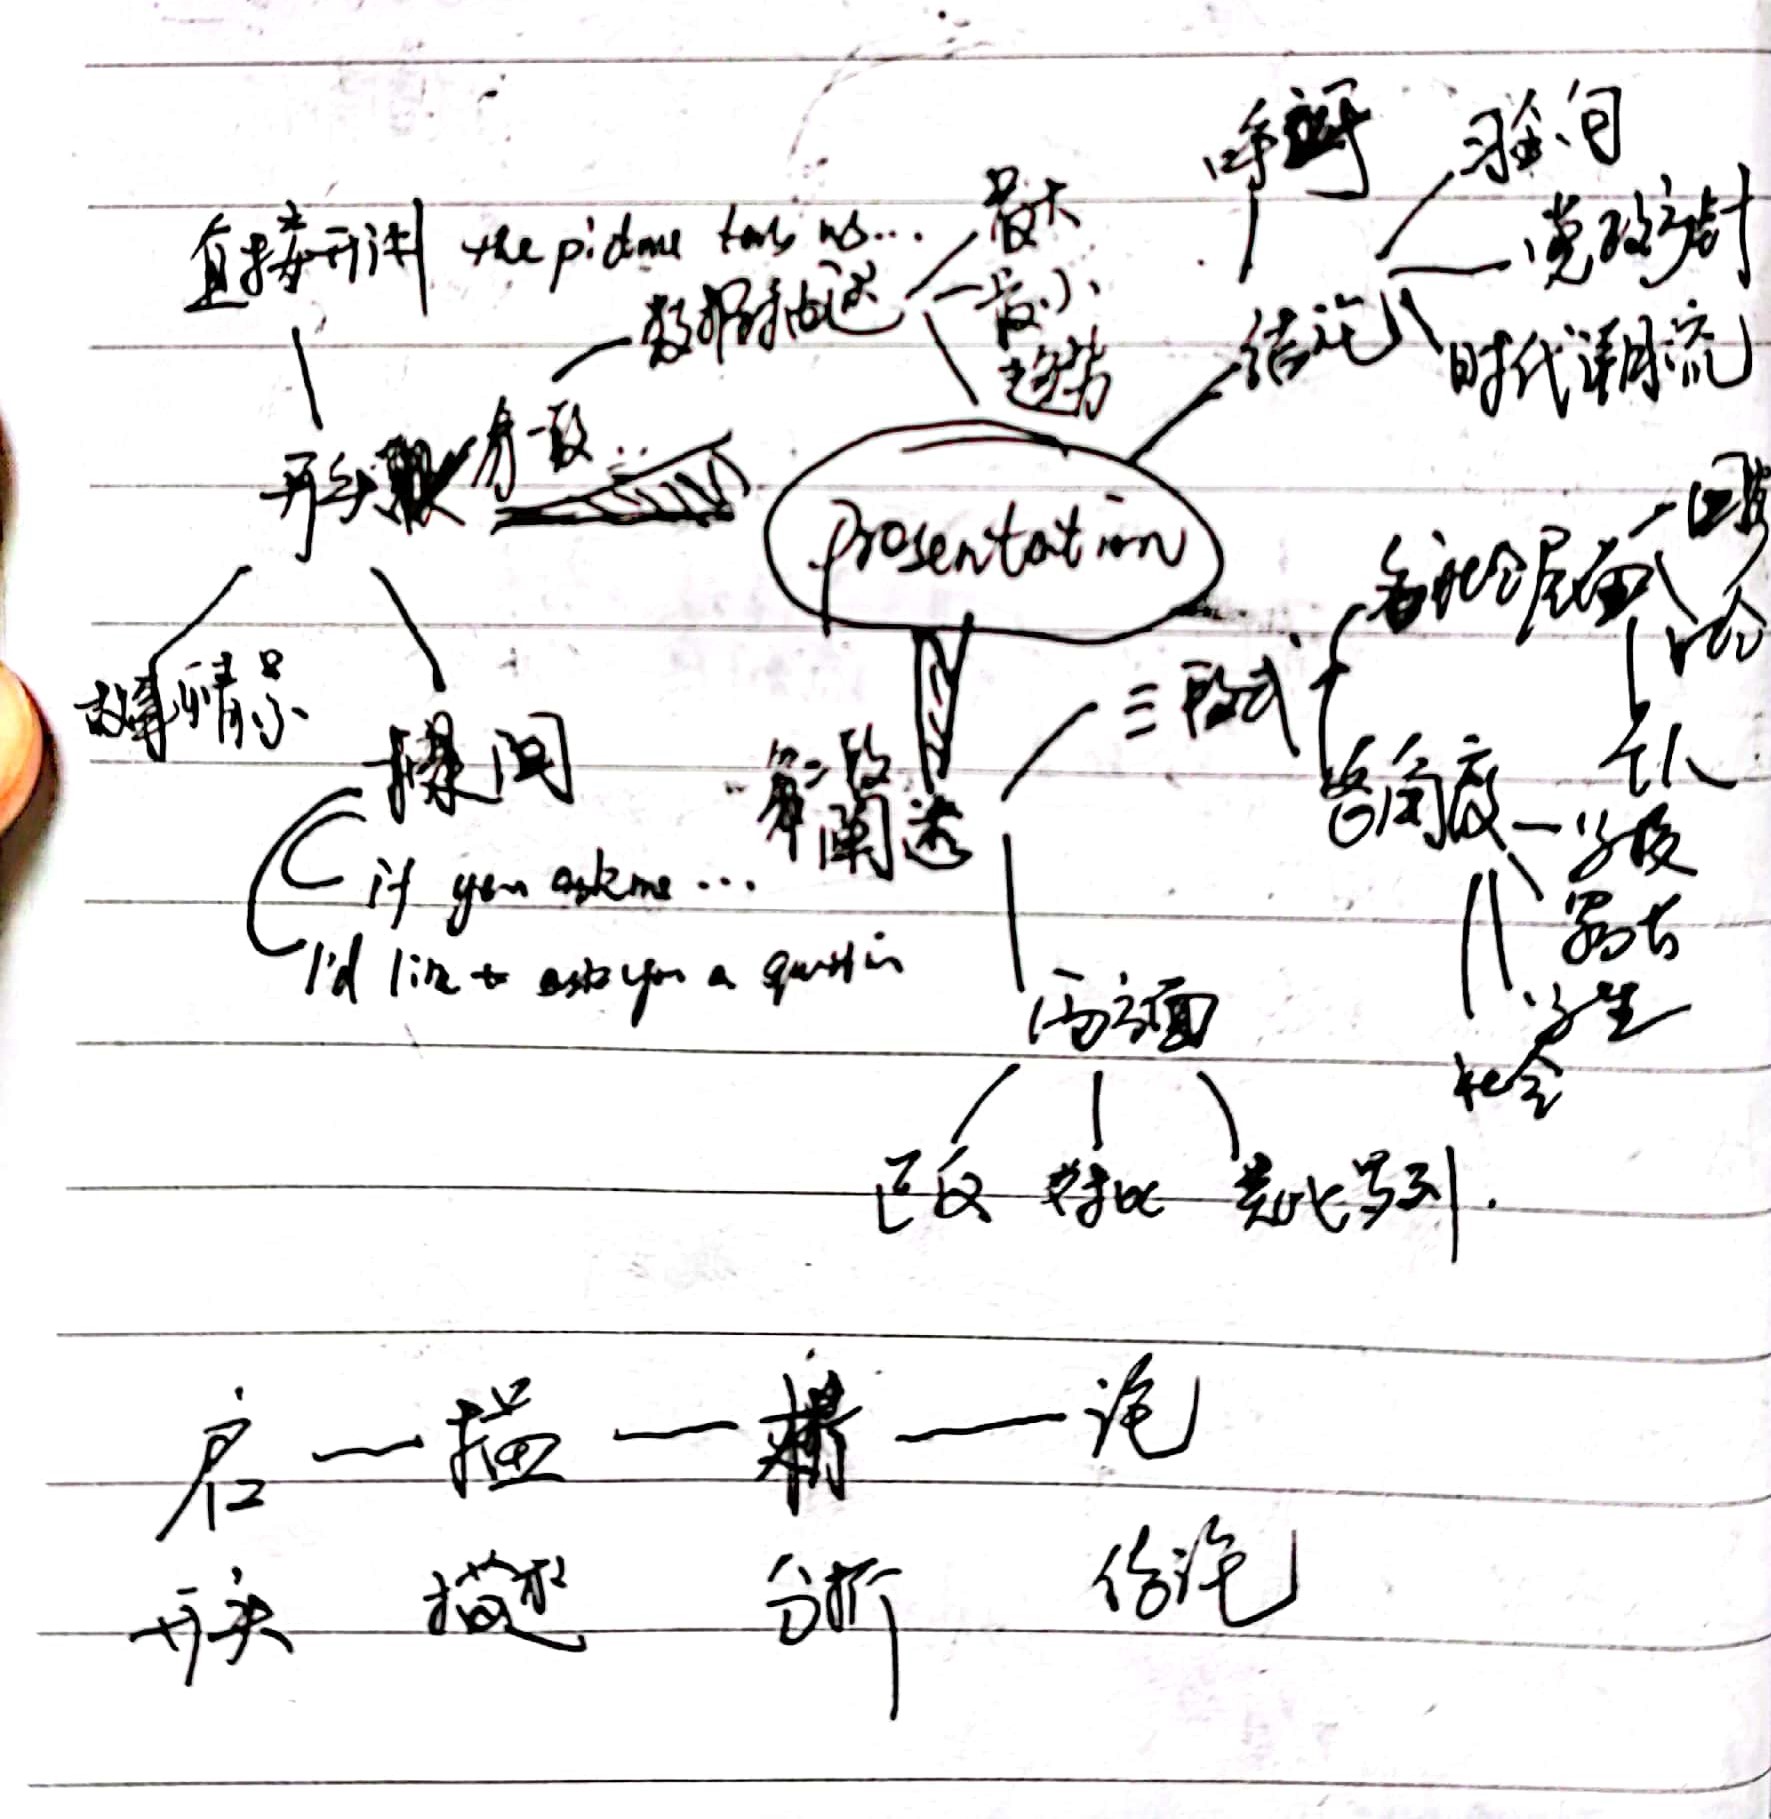 呼吁
习金句
党政方针
时代潮流
结论
直接开讲 the picture tells us...
数据描述
最大
最小
趋势
开头
第一段
presentation
故事情景
提问
if you ask me ...
I'd like to ask you a question
第二段
阐述
三段式
各社会层面
国家
社会
个人
各角度
学校
家长
学生
社会
两方面
正反 对比 类比罗列.
启 — 描 — — 论
开头 描述 分析 结论